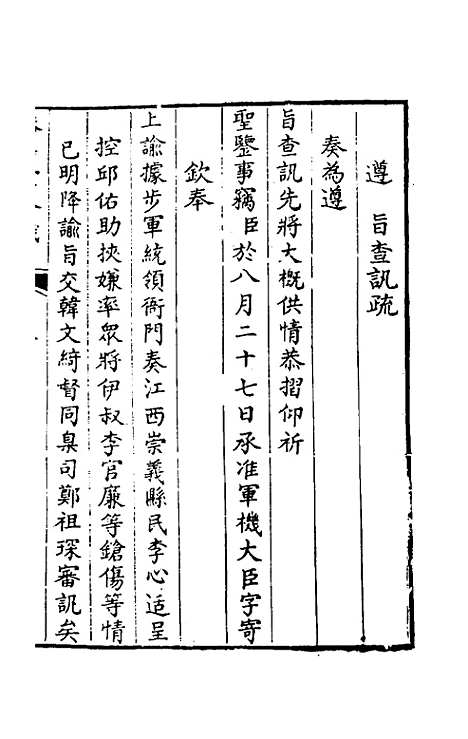 遵　旨查訊疏
奏為遵
旨查訊先將大概供情恭摺仰祈
聖鑒事竊臣於八月二十七日承准軍機大臣字寄
欽奉
上諭據步軍統領衙門奏江西崇義縣民李心适呈
控邱佑助挾嫌率眾將伊叔李官廉等鎗傷等情
已明降諭旨交韓文綺督同臬司鄭祖琛審訊矣